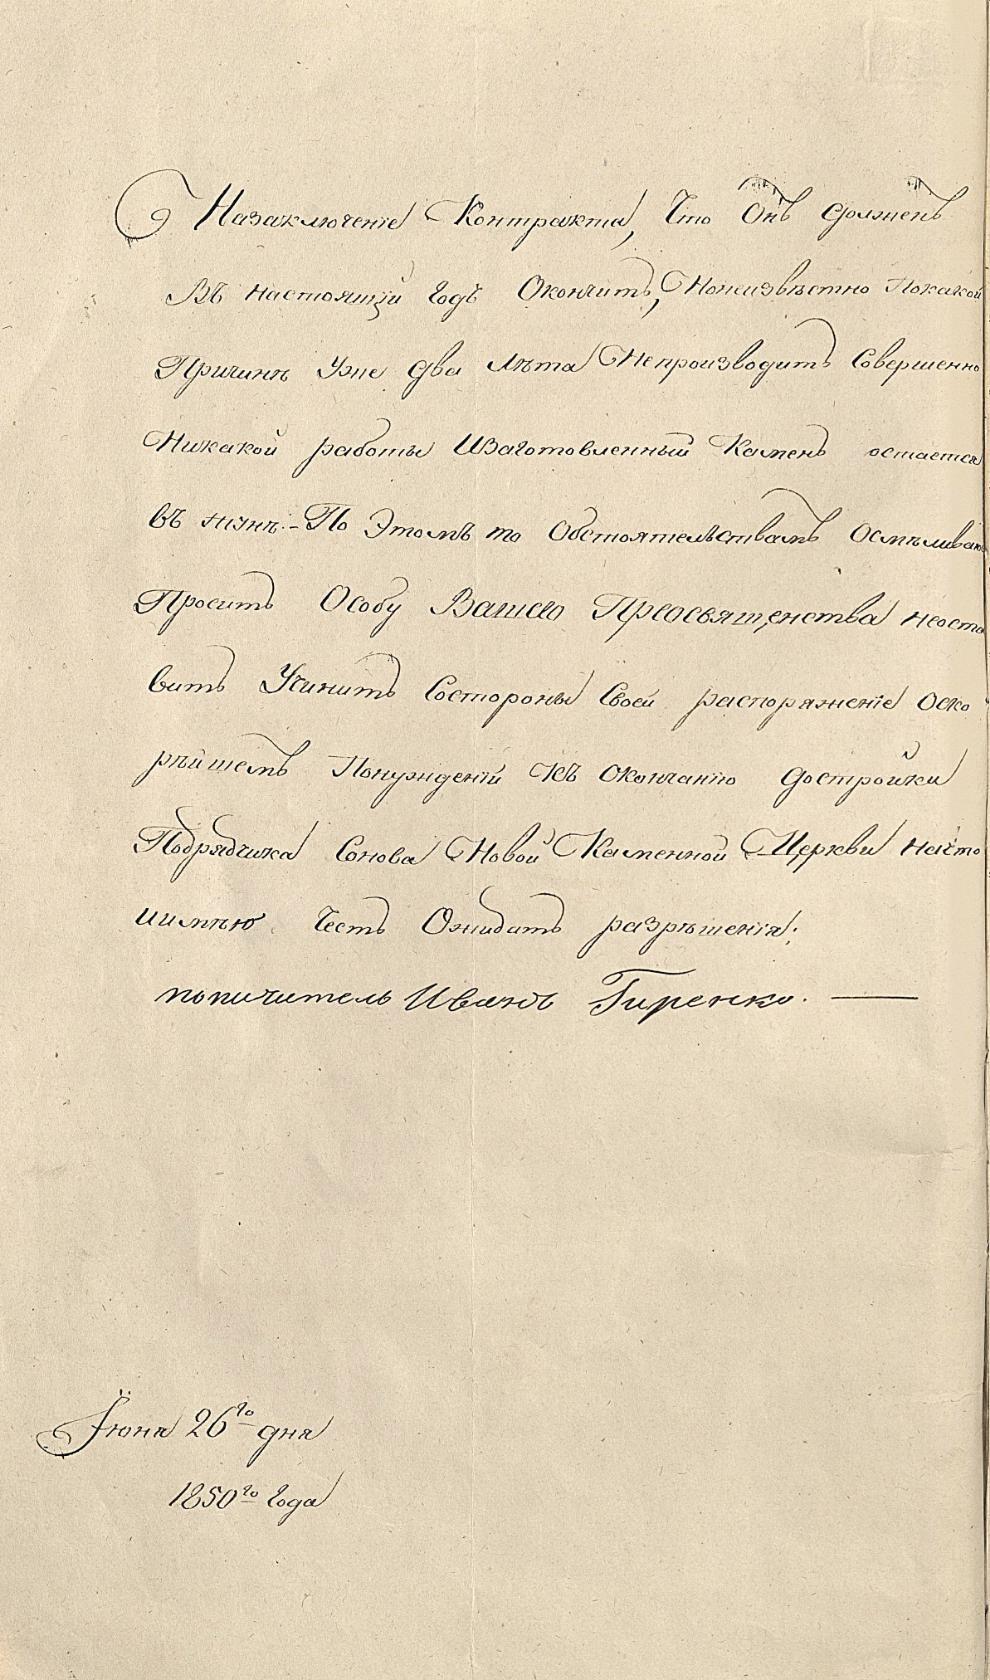 Назаключенiе Контракта, Что Онъ долженъ
Въ настоящiй годъ Окончить, Нонеизвѣстно Покакой
Причинѣ Уже два лѣта Непроизводитъ Совершенно
Никакой работы Изаготовленный Камень остается
въ ... По Этомъ то Обстоятельствамъ Осмѣливаюс
Просить Особу Вашего Преосвященства неоста
вить Учинить Состороны Своей распоряженiе оско
рѣйшемъ Понужденiи Къ окончанiю достройки
Подрядчика Сонова Новой Каменной Церкви Начто
иимѣю Честь Ожидать разрѣшенiя:
попичитель Иванъ Гиренко. —
Iюня 26го дня
1850го года